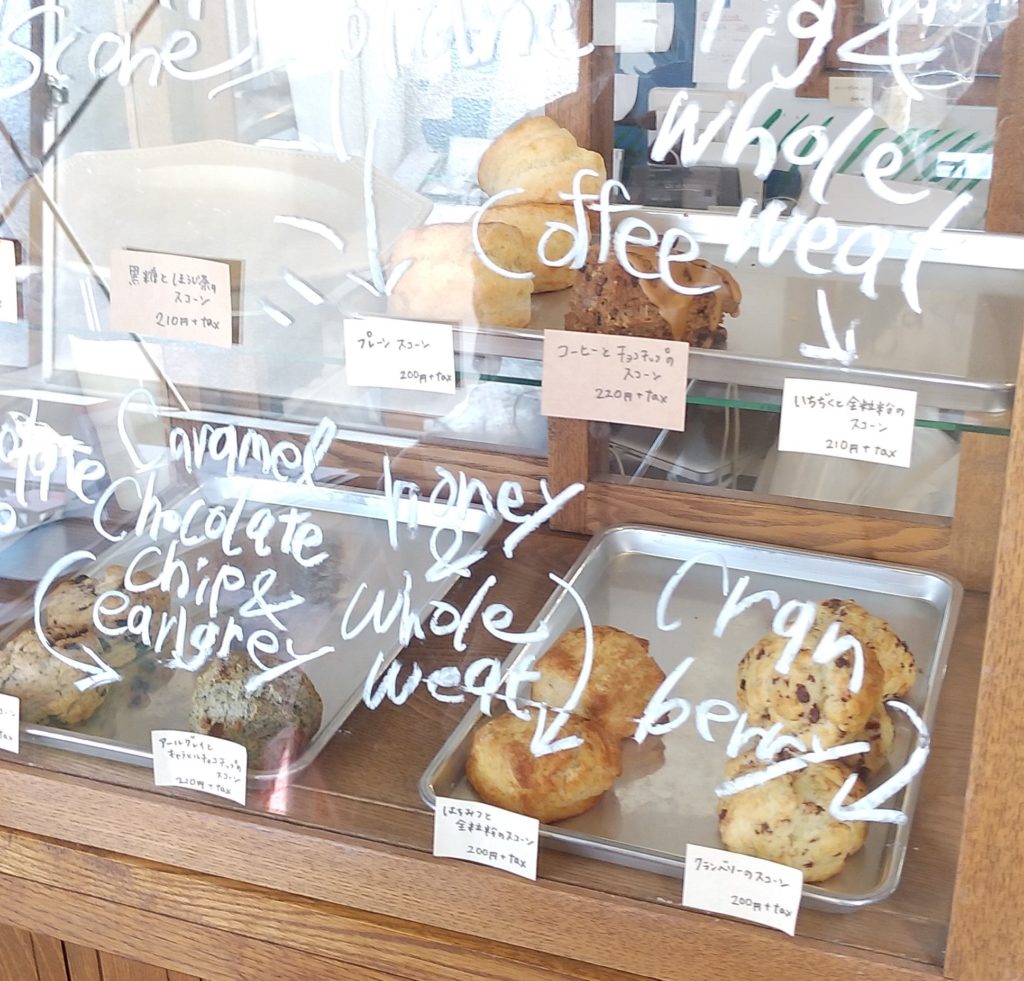 Skone
plane
Fig &
whole
weat
Coffee
黒糖とほうじ茶の
スコーン
210円+tax
プレーン スコーン
200円+tax
コーヒーと チョコチップの
スコーン
220円+tax
いちぢくと全粒粉の
スコーン
210円+tax
Caramel
Chocolate
Chip &
earlgrey
honey
&
whole
weat
Cran
berry
アールグレイと
キャラメルチョコチップの
スコーン
210円+tax
はちみつと
全粒粉のスコーン
200円+tax
クランベリーのスコーン
200円+tax